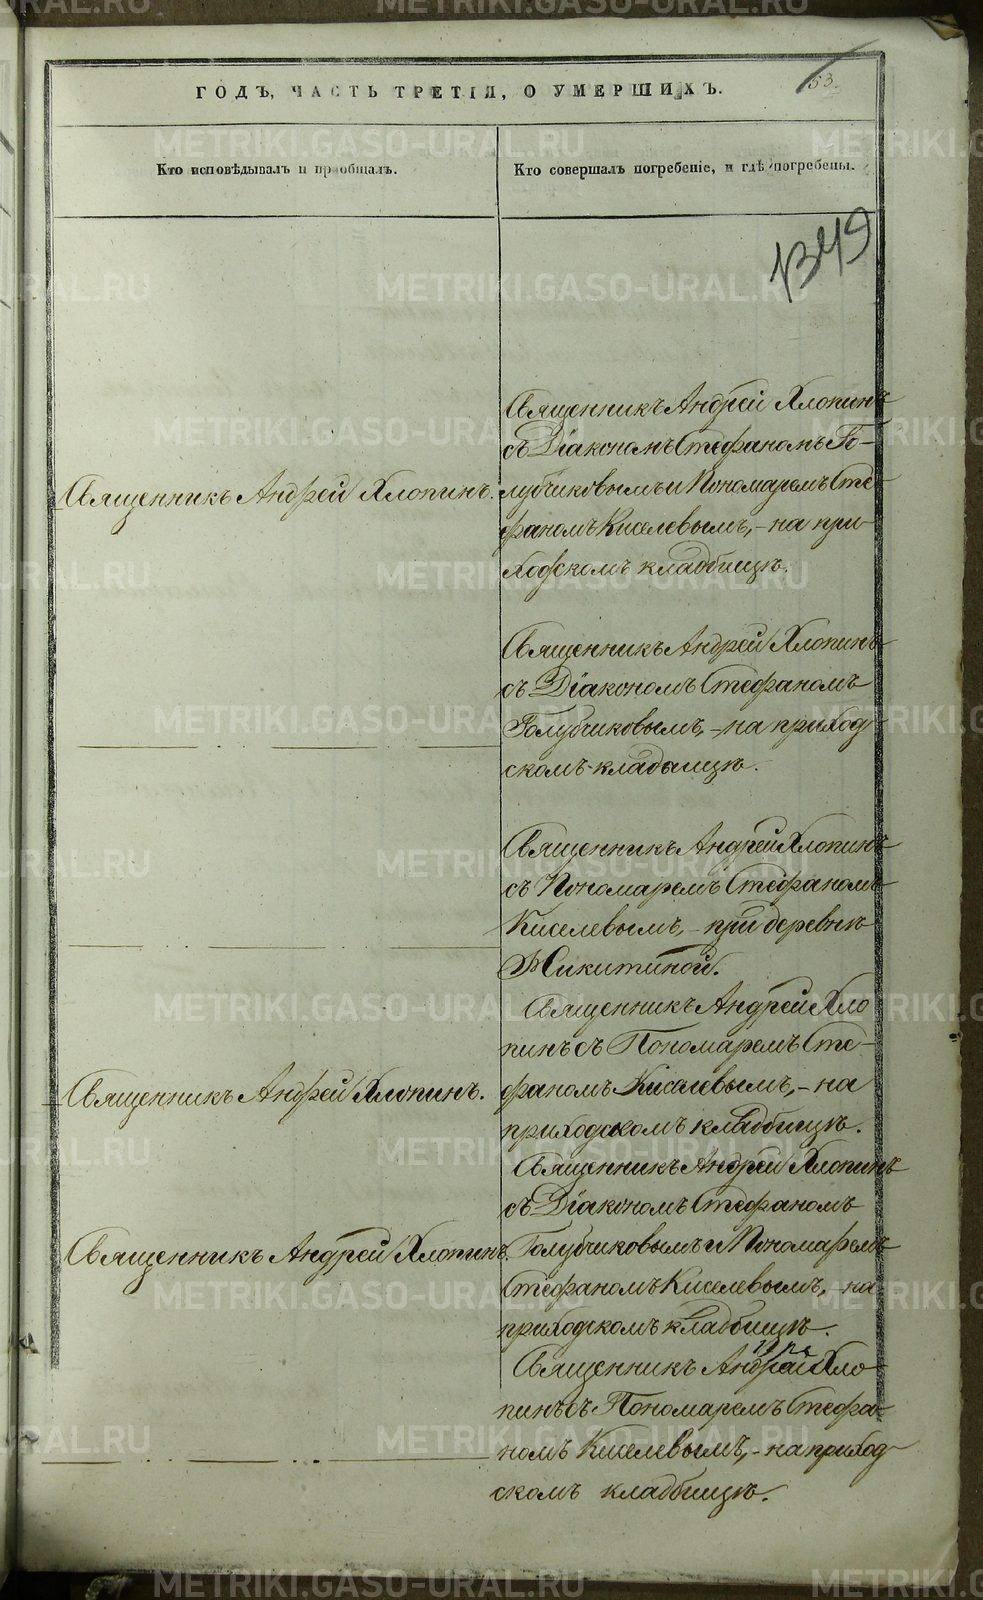 53.
ГОДЪ, ЧАСТЬ ТРЕТІЯ, О УМЕРШИХЪ.
Кто исповѣдывалъ и пріобщалъ.
Кто совершалъ погребеніе, и гдѣ погребены.
1349
Священникъ Андрей Хлопинъ.
Священникъ Андрей Хлопинъ
съ Діакономъ Стефаномъ Го-
лубчиковымъ и Пономаремъ Сте-
фаномъ Киселевымъ, - на при-
ходскомъ кладбищѣ.
Священникъ Андрей Хлопинъ
съ Діакономъ Стефаномъ
Голубчиковымъ, - на приход
скомъ кладбищѣ.
Священникъ Андрей Хлопинъ
съ Пономаремъ Стефаномъ
Киселевымъ, - при деревнѣ
Микитиной.
Священникъ Андрей Хлопинъ.
Священникъ Андрей Хло
пинъ съ Пономаремъ Сте-
фаномъ Киселевымъ, - на
приходскомъ кладбищѣ.
Священникъ Андрей Хлопинъ.
Священникъ Андрей Хлопинъ
съ Діакономъ Стефаномъ
Голубчиковымъ и Пономаремъ
Стефаномъ Киселевымъ, - на
приходскомъ кладбищѣ.
Священникъ Андрей Хло-
пинъ съ Пономаремъ Стефа-
номъ Киселевымъ, - на приход
скомъ кладбищѣ.
METRIKI.GASO-URAL.RU